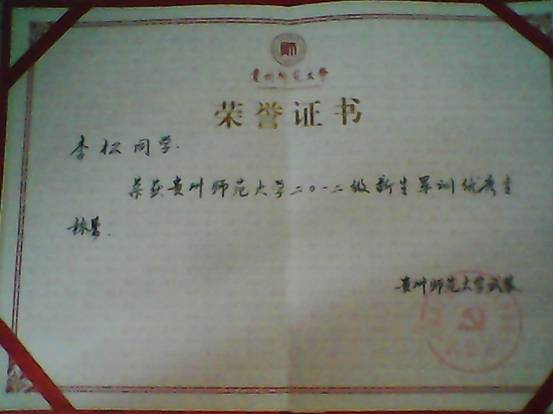 贵州师范大学
荣誉证书
李松同学:
荣获贵州师范大学二〇一二级新生军训优秀主
贵州师范大学武装